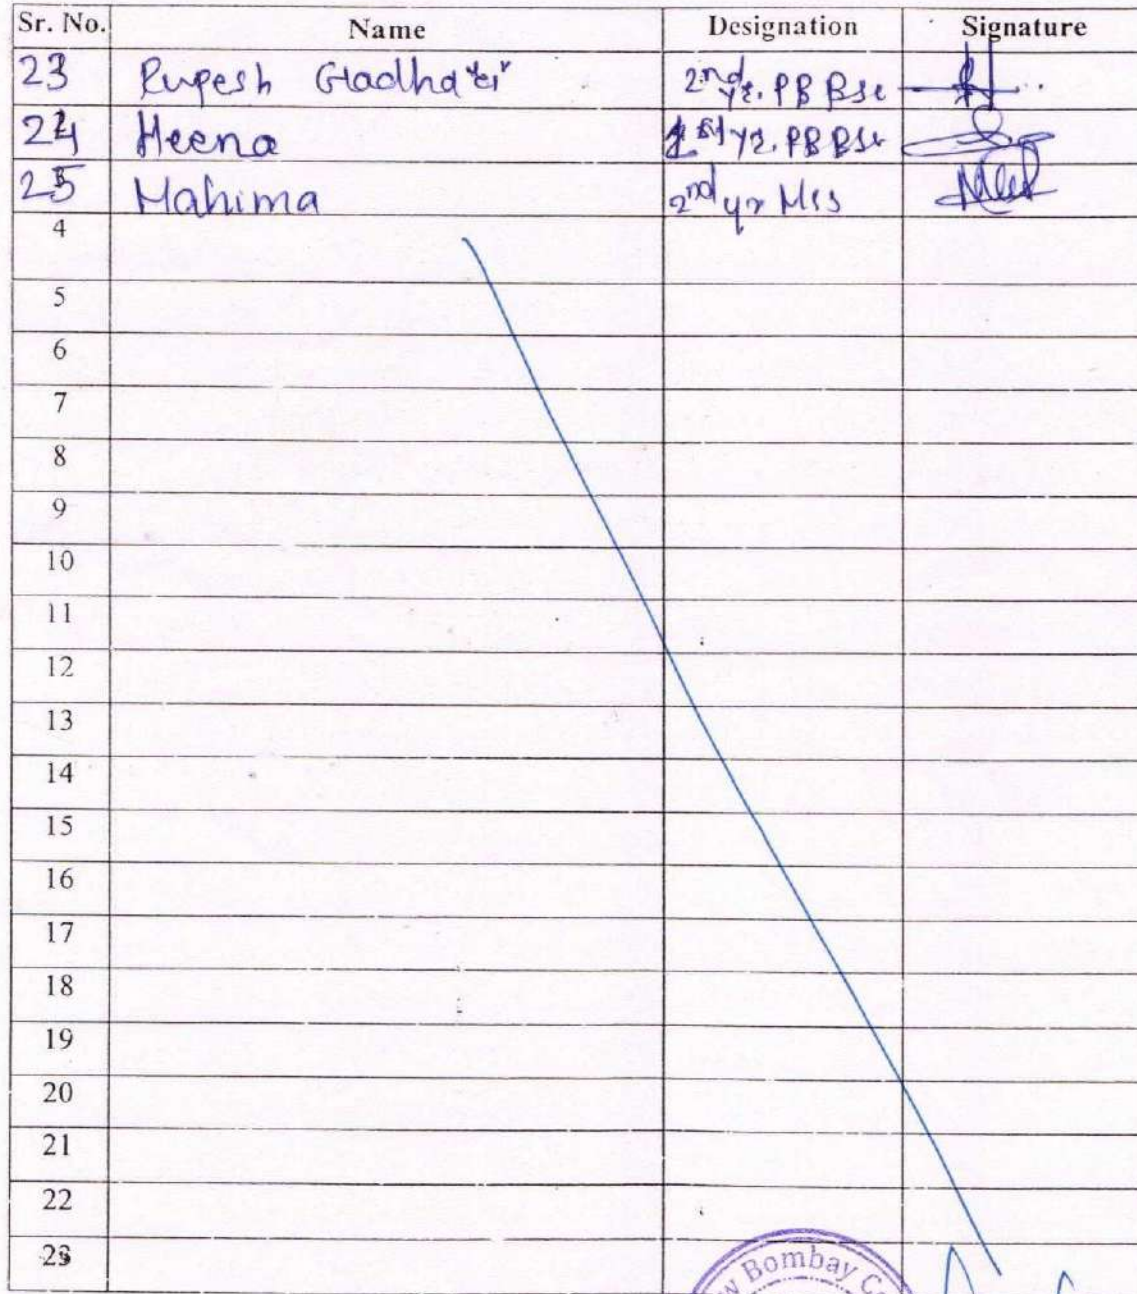 Sr. No. Name Designation Signature
23 Rupesh 2nd yr. PB BSc
24 Heena 1st yr. PB BSc
25 Mahima 2nd yr
4
5
6
7
8
9
10
11
12
13
14
15
16
17
18
19
20
21
22
23
Bombay